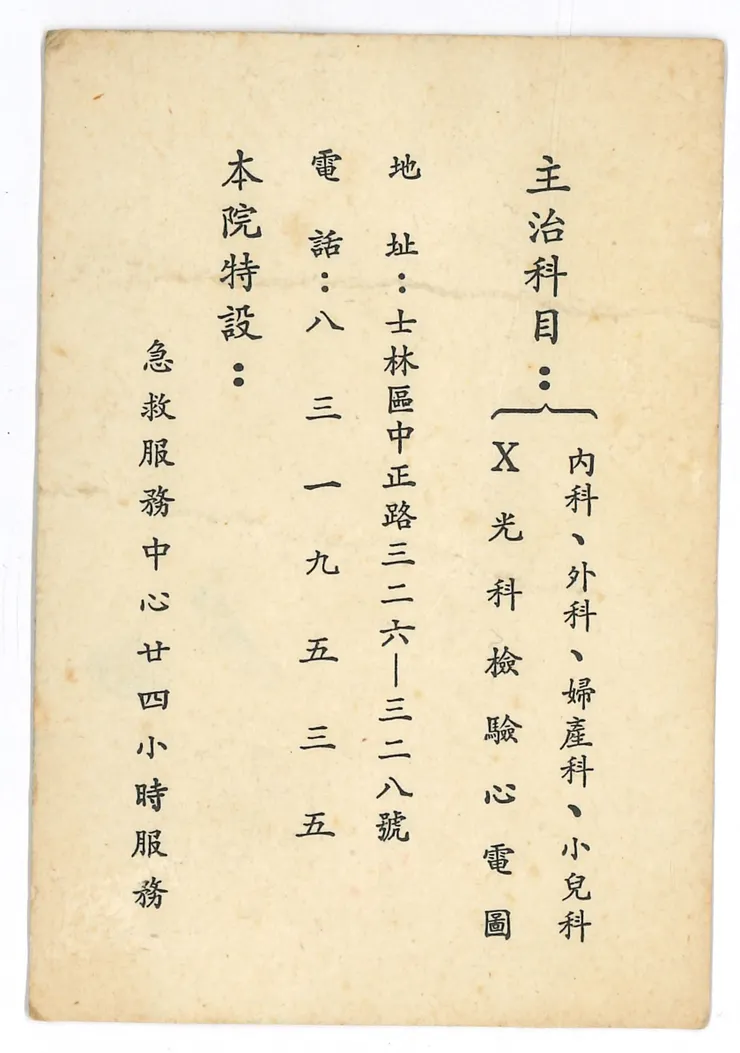 主治科目：
內科、外科、婦產科、小兒科
X光科檢驗心電圖
地址：士林區中正路三二六—三二八號
電話：八三一九五三五
本院特設：
急救服務中心廿四小時服務